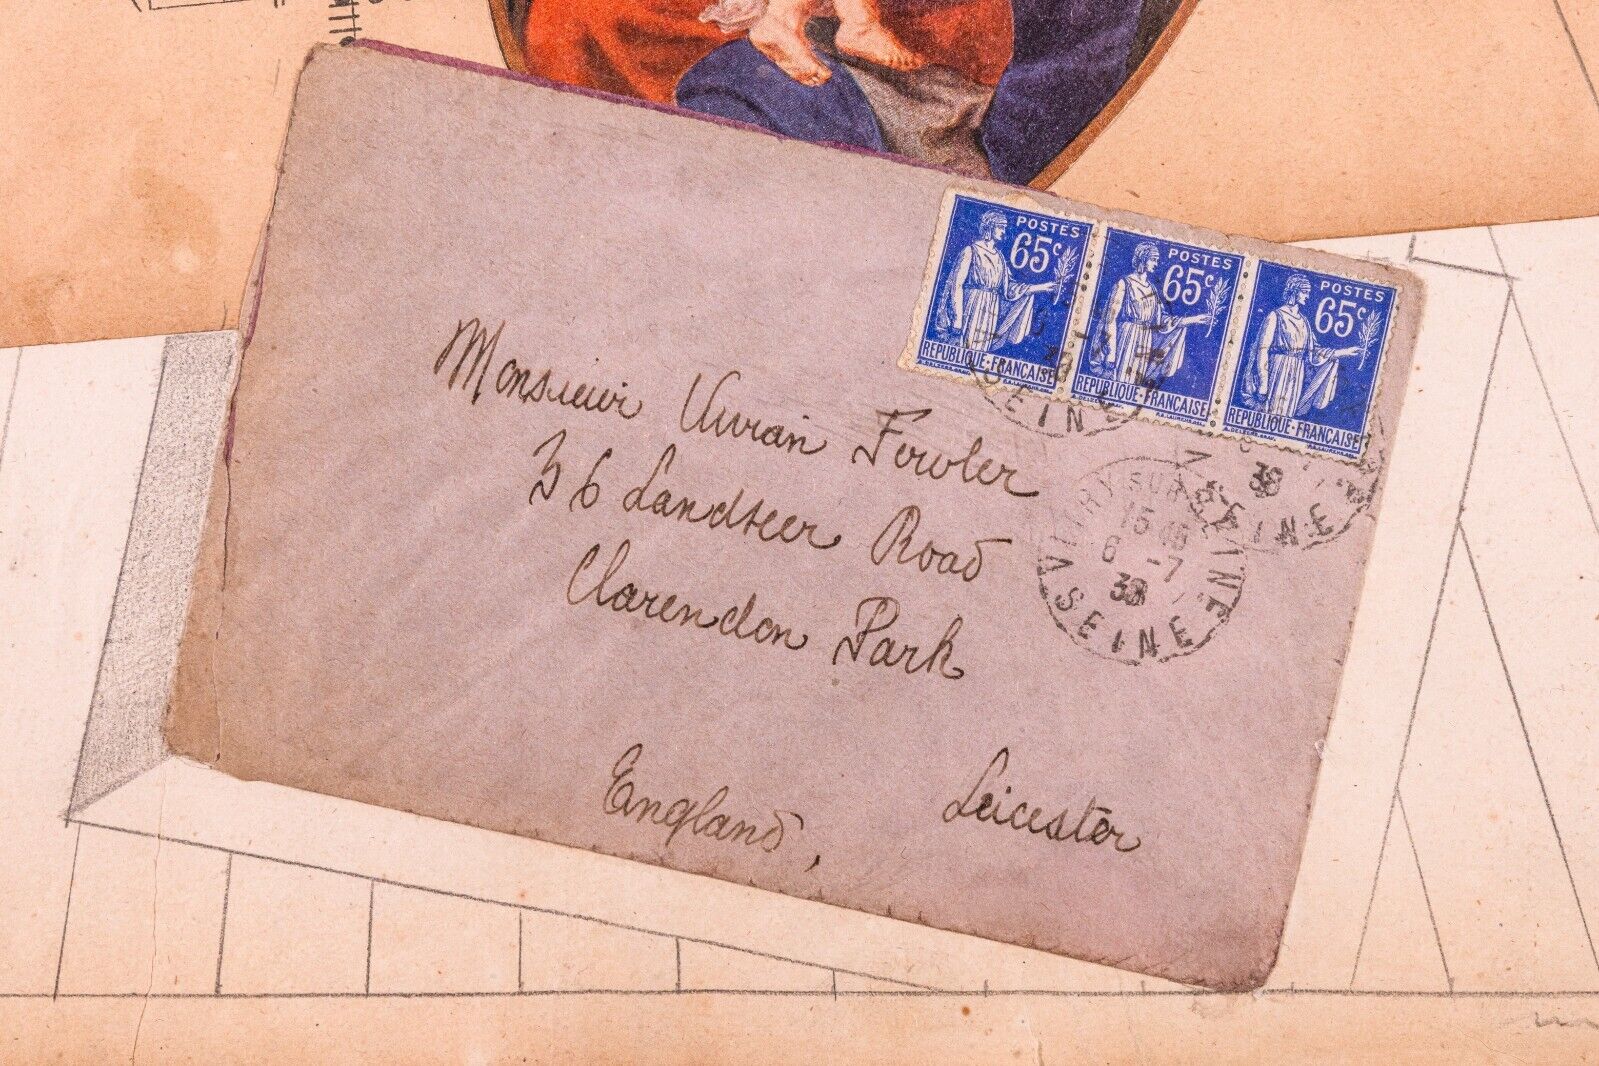 POSTES
65c
REPUBLIQUE-FRANCAISE
POSTES
65c
REPUBLIQUE-FRANCAISE
POSTES
65c
REPUBLIQUE-FRANCAISE
Monsieur Vivian Fowler
36 Landseer Road
Clarendon Park
England,
Leicester
VITRY SUR SEINE
6 -7
38
SEINE
SEINE
38
SEINE